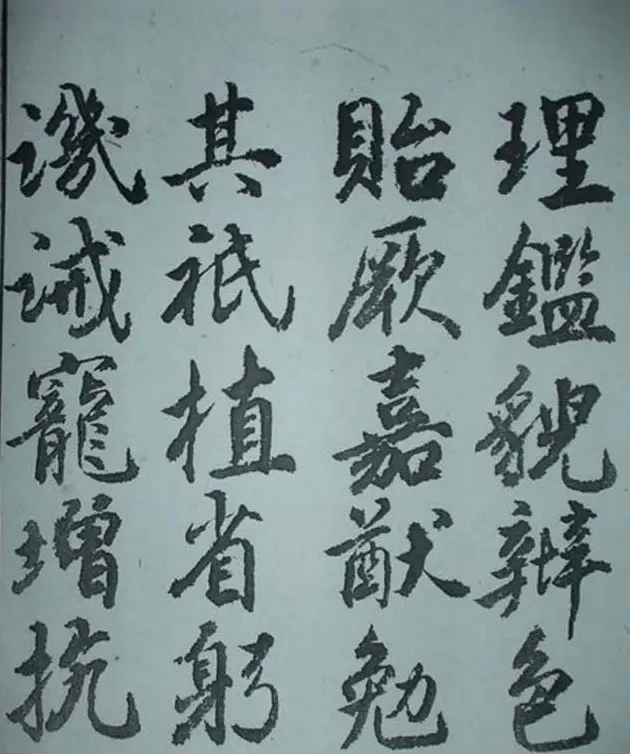 理鑑貌辯色
貽厥嘉猷勉
其祇植省躬
譏誡寵增抗